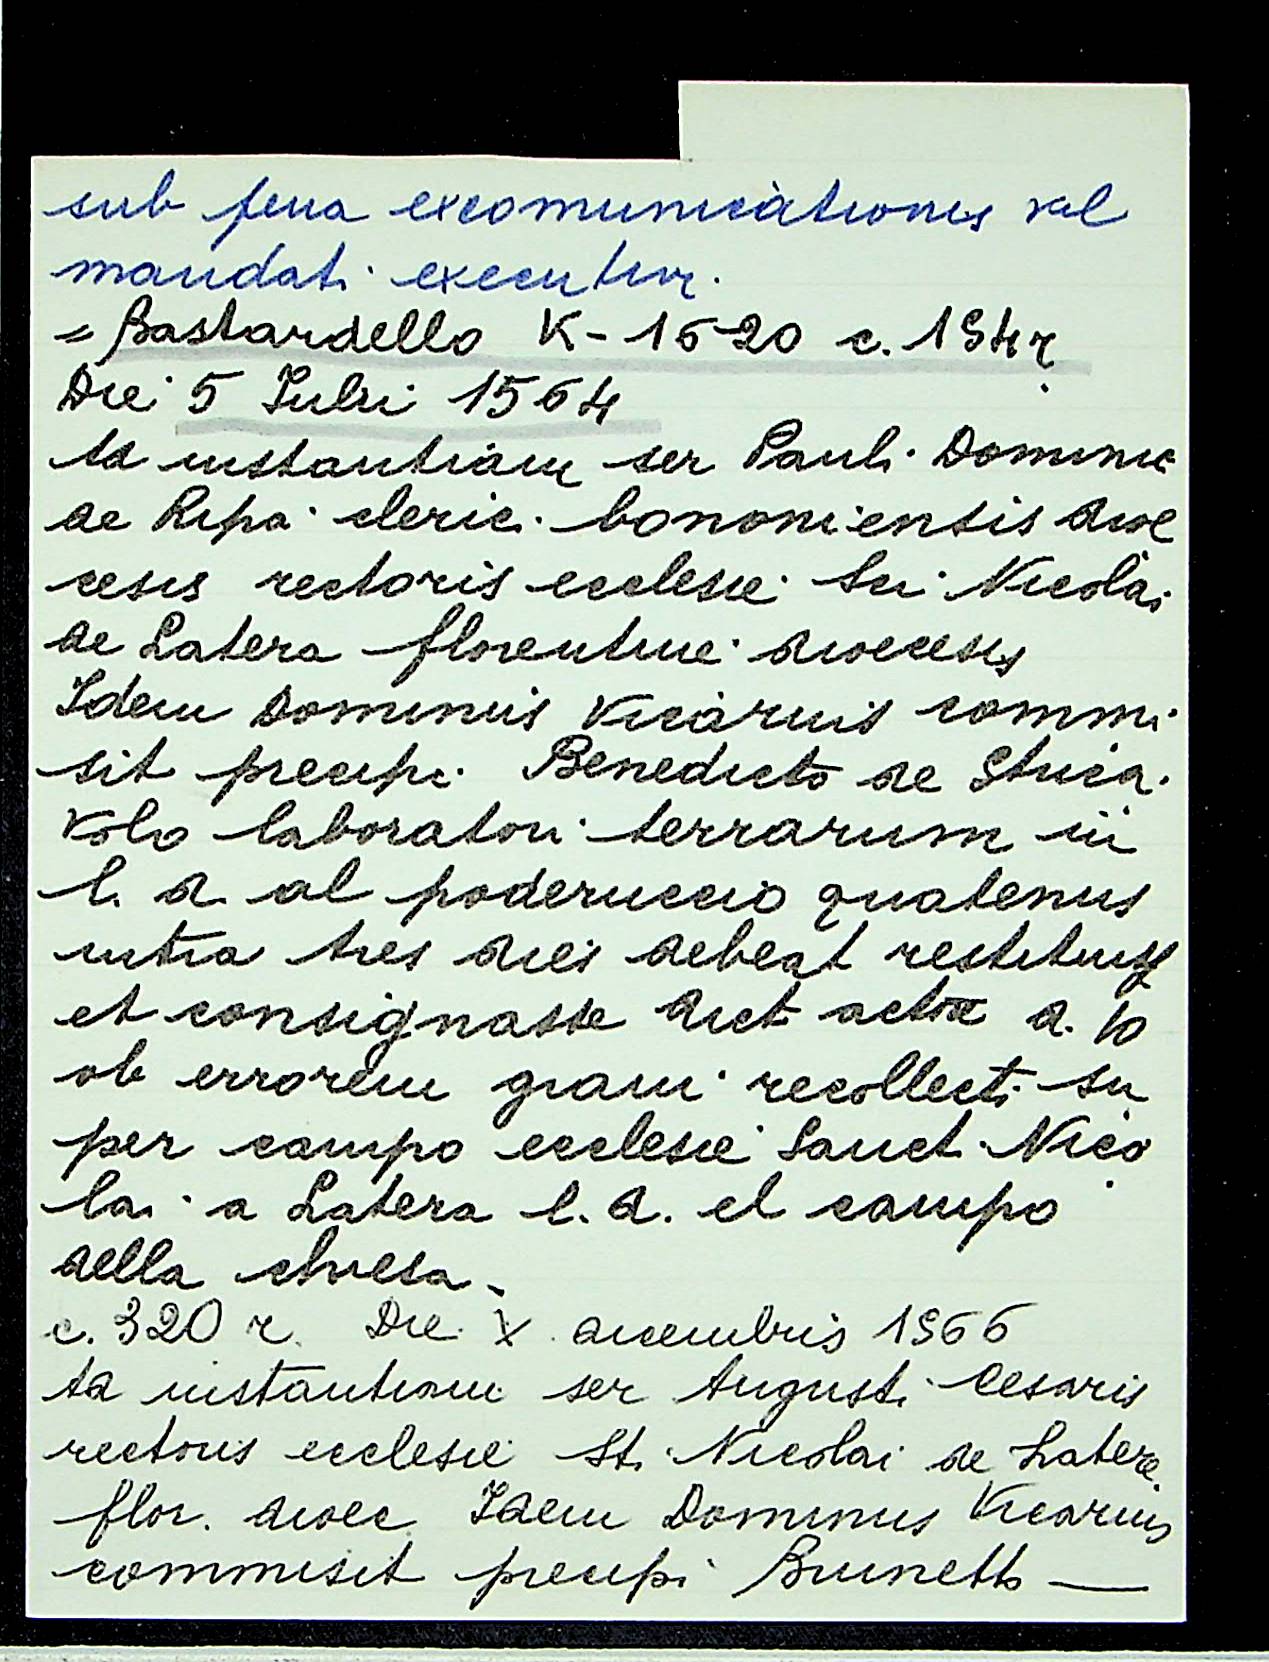 sub pena excomunicationis vel
mandati executivi.
= Bastardello K-1620 c. 194r
Die 5 Iulii 1564
Ad instantiam ser Pauli Dominici
de Ripa cleric. bononiensis dioe
cesis rectoris ecclesie Sci Nicolai
de Latera florentine dioecesis
Idem Dominus Vicarius commi
sit precipi Benedicto de
laboratori terrarum in
l. d. al poderuccio quatenus
intra tres dies debeat
et consignasse dict.
ob errorem grani recollecti su
per campo ecclesie Sancti Nico
lai a Latera l. d. el campo
della chiesa.
c. 320 r. Die X decembris 1566
Ad instantiam ser Augusti Cesaris
rectoris ecclesie St. Nicolai de Latera
flor. dioec Idem Dominus Vicarius
commisit precipi Brunetto —